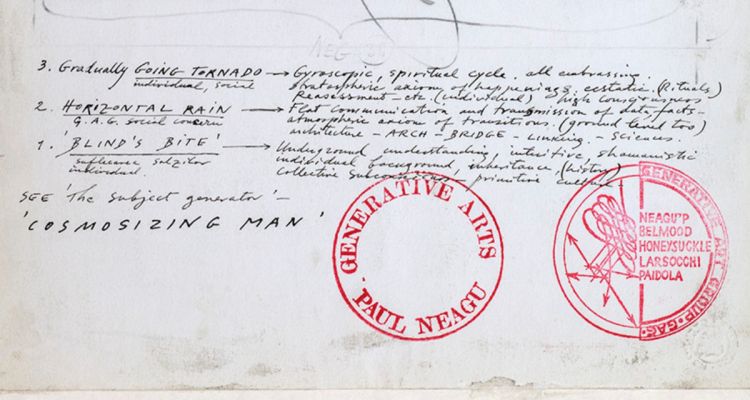 3. Gradually GOING TORNADO → Gyroscopic, spiritual cycle. all embrassing.
individual, social
Stratospheric axiom of happenings. ecstatic. (Rituals)
Reassessment - etc (individual) high consciousness
2. HORIZONTAL RAIN → Flat communication and transmission of data, facts -
G.A.G. social concern
atmospheric axiom of transitions. (ground level too)
architecture - ARCH - BRIDGE - Linking - Sciences.
1. 'BLIND'S BITE' → Underground understanding, intuitive, shamanistic
individual.
individual background, inheritance, (history)
collective subconscious, primitive culture -
SEE 'The subject generator' -
'COSMOSIZING MAN'
GENERATIVE ARTS
PAUL NEAGU
GENERATIVE ART GROUP · GAG ·
NEAGU'P
BELMOOD
HONEYSUCKLE
LARSOCCHI
PAIDOLA